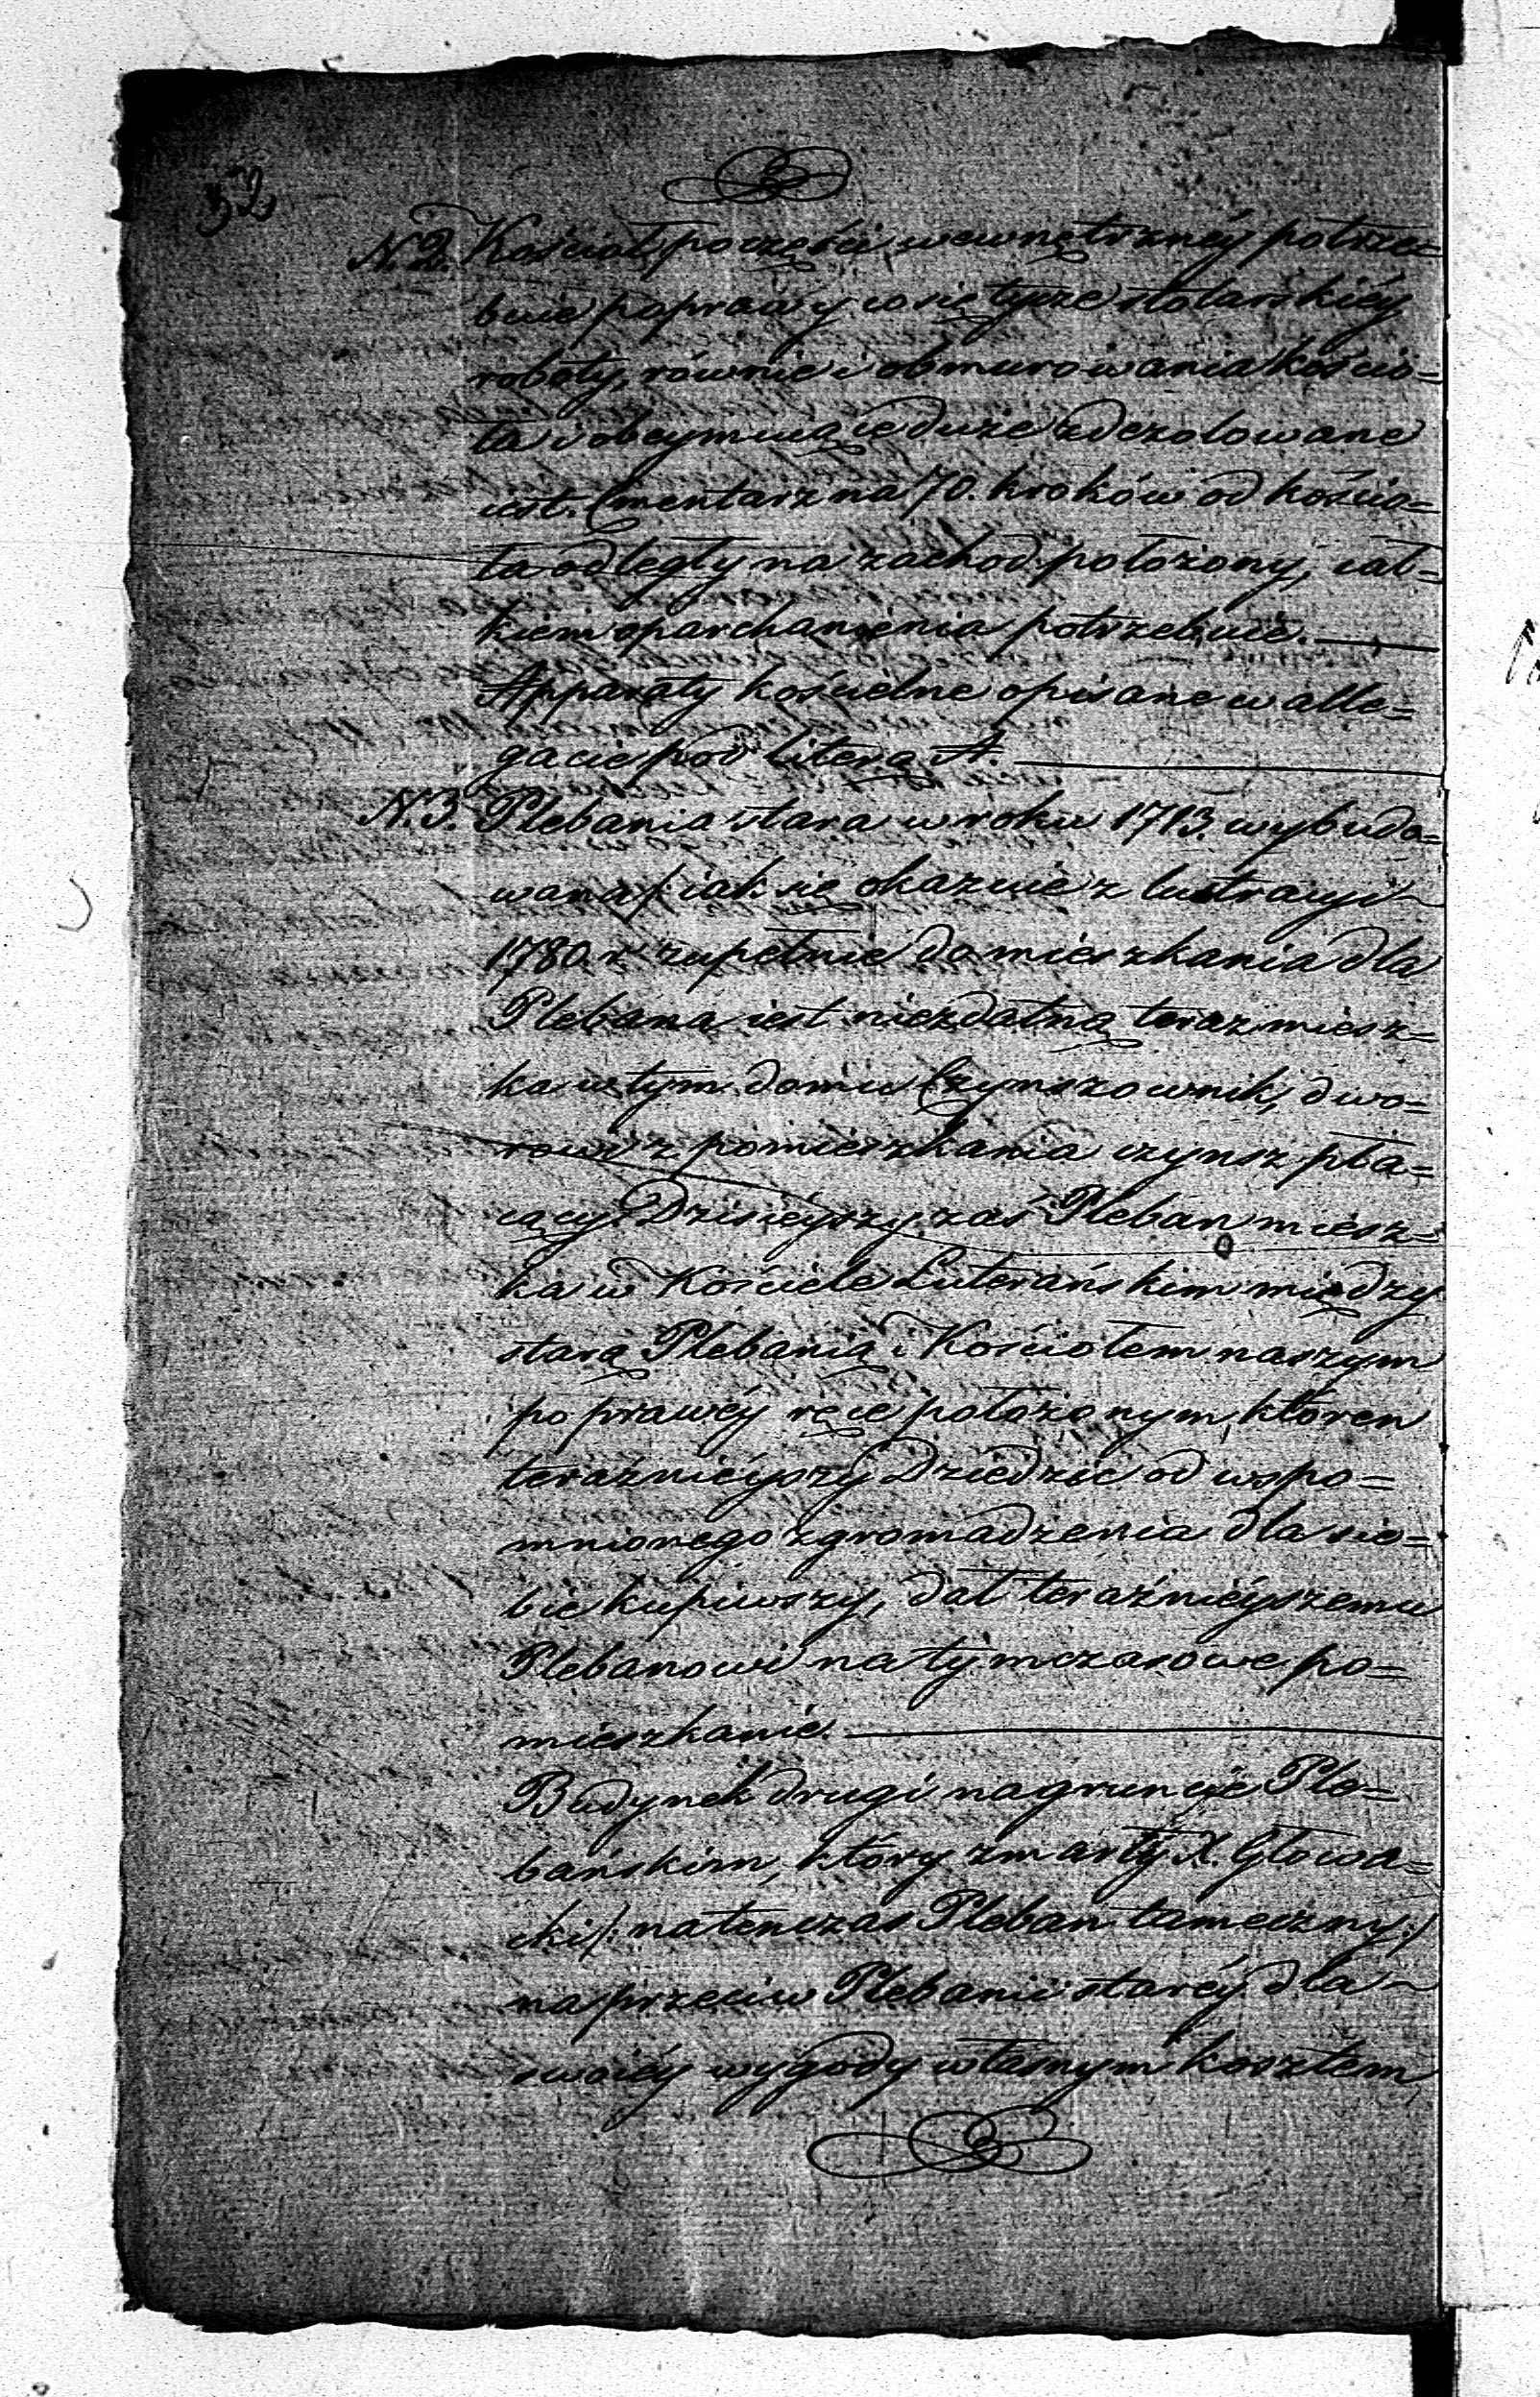 32
N. 2. Kościoł po części wewnętrznéy potrze=
buie poprawy w się tycze stolarskiéy
roboty, równie i obmurowania kościo=
ła i obeymuiącie duże zdezolowane
iest. Cmentarz na 70. kroków od kościo=
ła odległy na zachod położony, cał=
kiem oparchanienia potrzebuie.
Apparaty kościelne opisane w alle=
gacie pod literą A.
N. 3. Plebania stara w roku 1713. wybudo=
wana /: iak się okazuie z lustracyi
1780. r. zupełnie do mieszkania dla
Plebana iest niezdatną teraz miesz=
ka w tym domu Czynszownik, dwo=
rowi z pomieszkania czynsz pła=
cący. Dzisieyszy zaś Pleban miesz=
ka w Kościele Luterańskim między
starą Plebanią i Kościołem naszym
po prawéy ręce położonym, któren
teraźnieyszy Dziedzic od wspo=
mnionego zgromadzenia dla sie=
bie kupiwszy, dał teraźnieyszemu
Plebanowi na tymczasowe po=
mieszkanie.
Budynek drugi na gruncie Ple=
bańskim, który zmarły X. Głowa=
cki /: natenczas Pleban tameczny :/
na przeciw Plebanii staréy dla
swoiéy wygody własnym kosztem